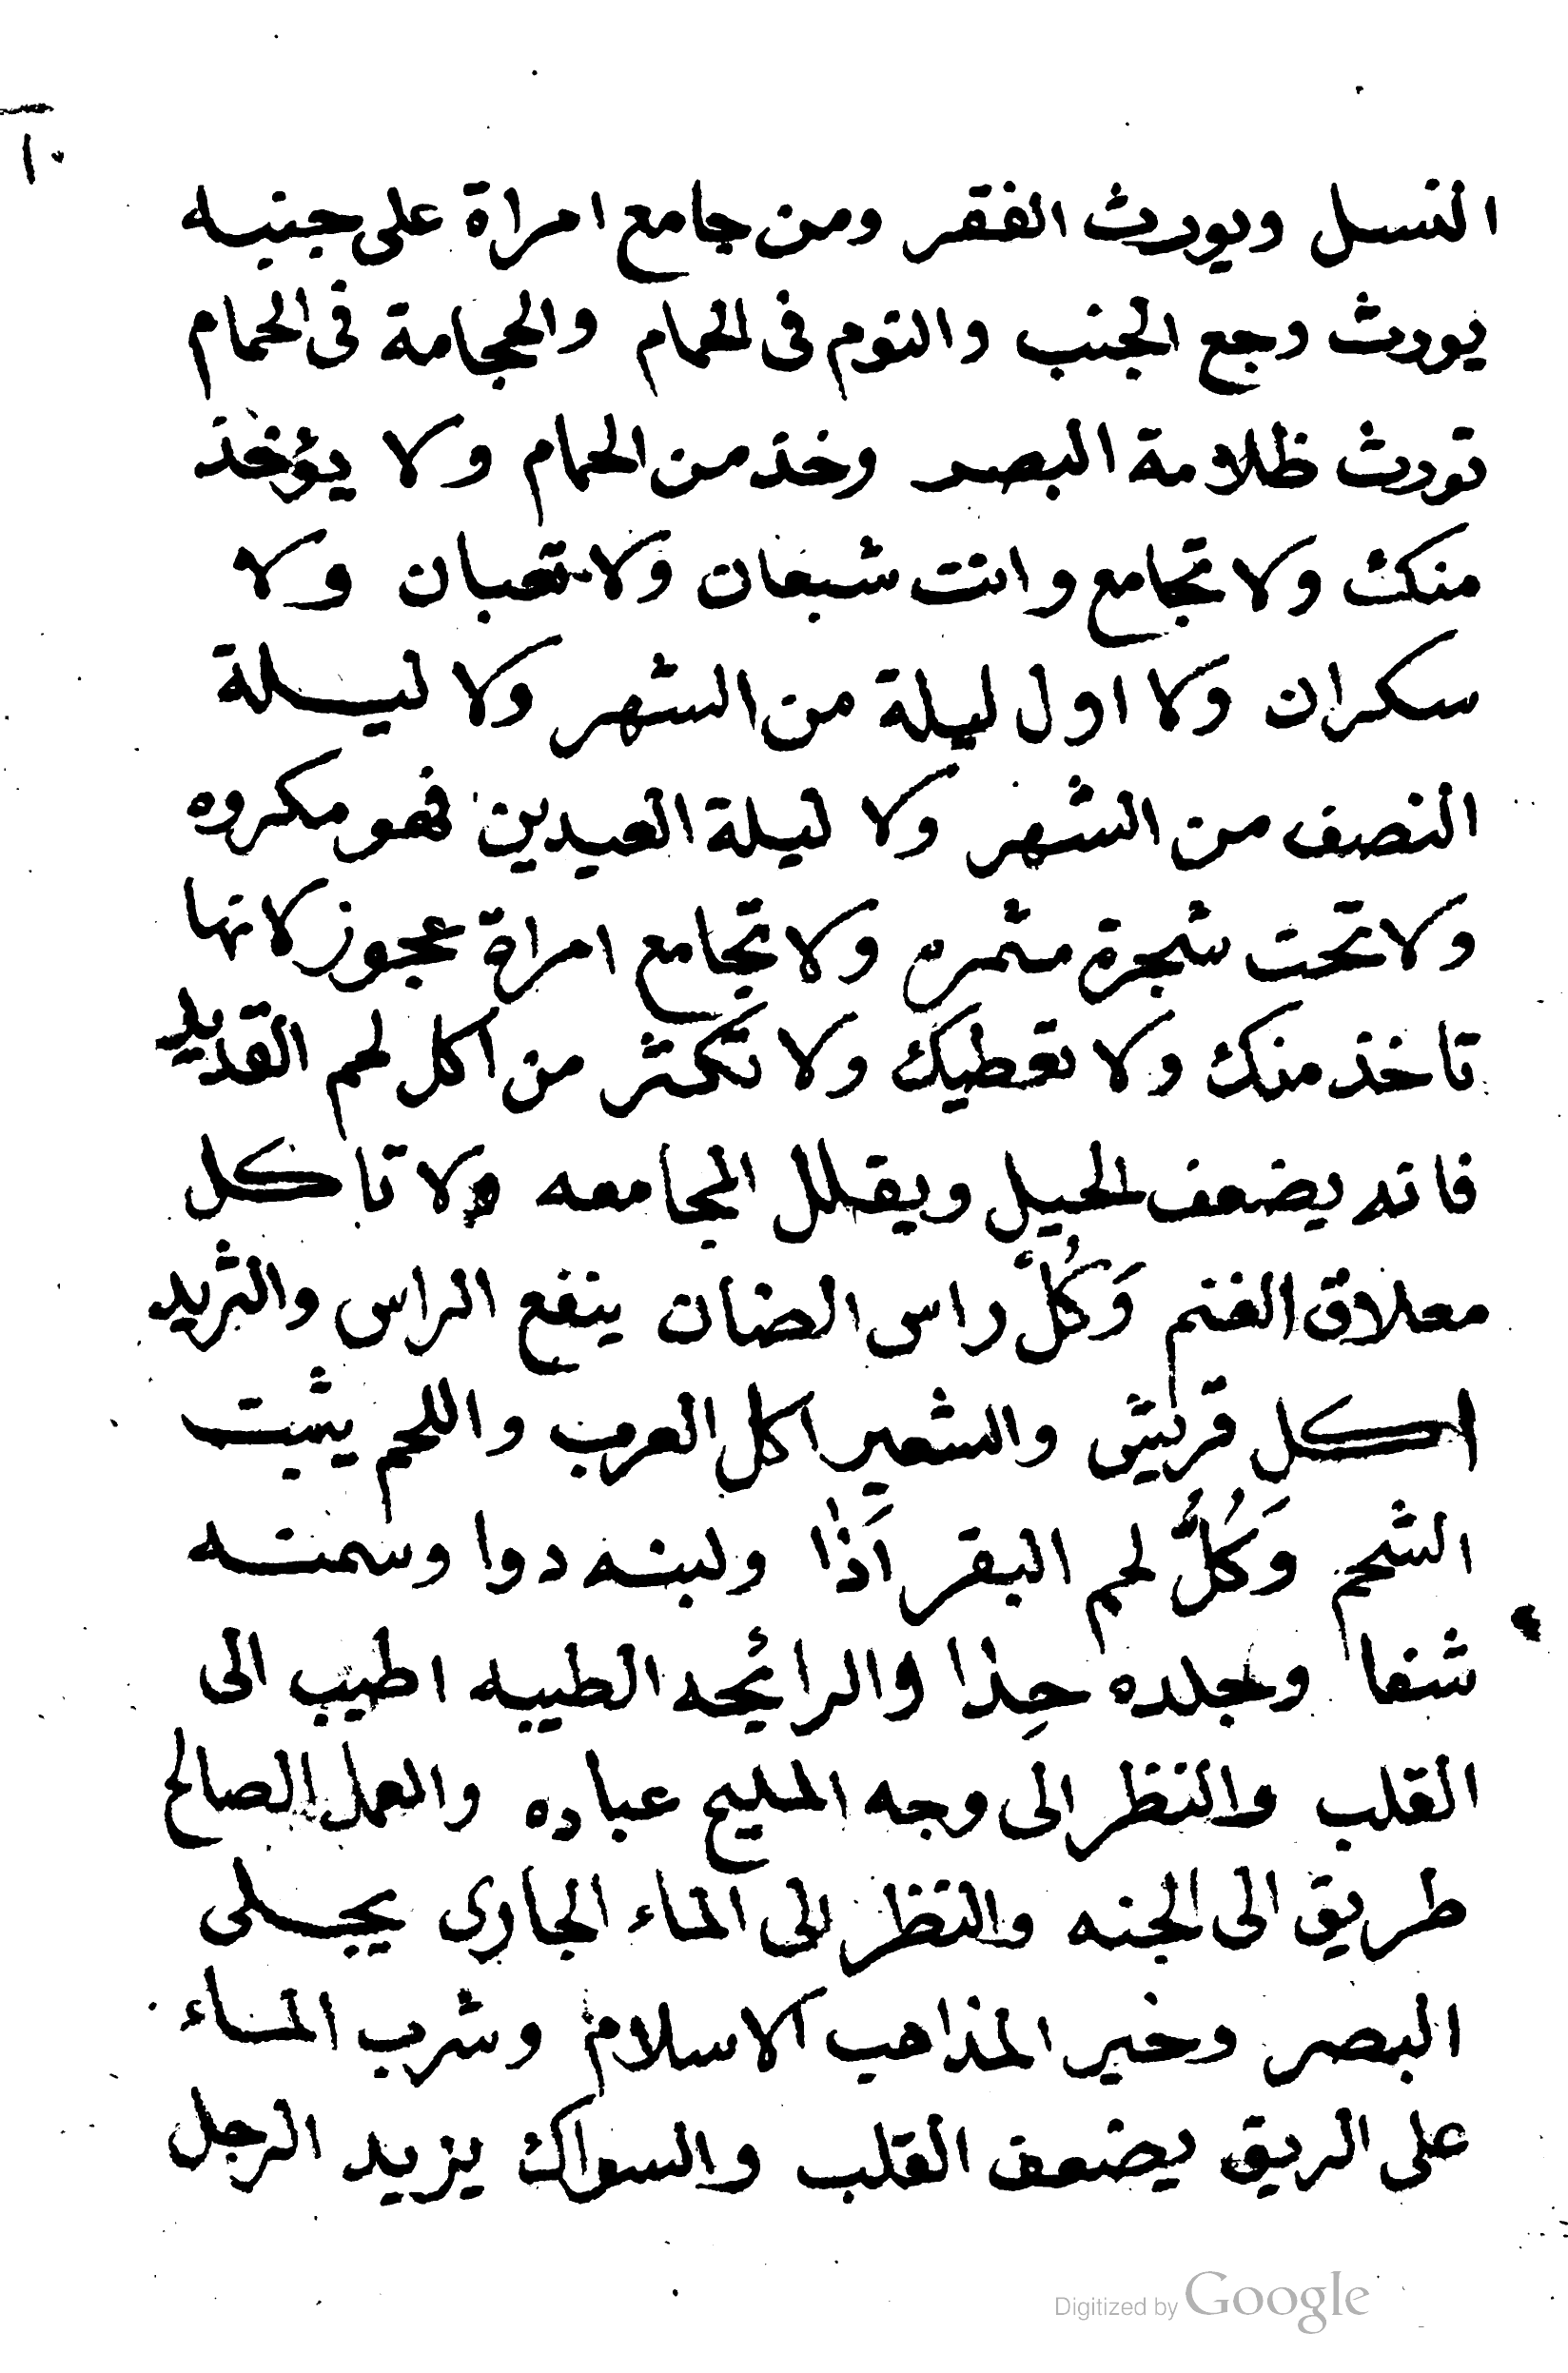 ١٠
النسل ويورث الفقر ومن جامع امراة على جنبه
يورث وجع الجنب والنوم فى الحمام والحجامة فى الحمام
تورث ظلامة البصر وخذ من الحمام ولا يؤخذ
منك ولا تجامع وانت شبعان ولا تعبان ولا
سكران ولا اول ليلة من الشهر ولا ليلة
النصف من الشهر ولا ليلة العيدين فهو مكروه
ولا تحت شجرة مثمره ولا تجامع امراة عجوز لانها
تاخذ منك ولا تعطيك ولا تكثر من اكل لحم القديد
فانه يضعف الحيل ويقلل المجامعه ولا تاكل
معلاق الغنم وَكُلْ راس الضان ينفع الراس والثريد
اكل قريش والشعير اكل العرب واللحم يثبت
الشحم وَكُلُّ لحم البقر اَذًا ولبنه دوا وسمنه
شفا وجلده حِذا والرائحه الطيبه اطيب الى
القلب والنظر الى وجه المليح عباده والعمل الصالح
طريق الى الجنه والنظر الى الماء الجارى يجلى
البصر وخير المذاهب الاسلام وشرب الماء
على الريق يضعف القلب والسواك يزيد الرجل
Digitized by Google